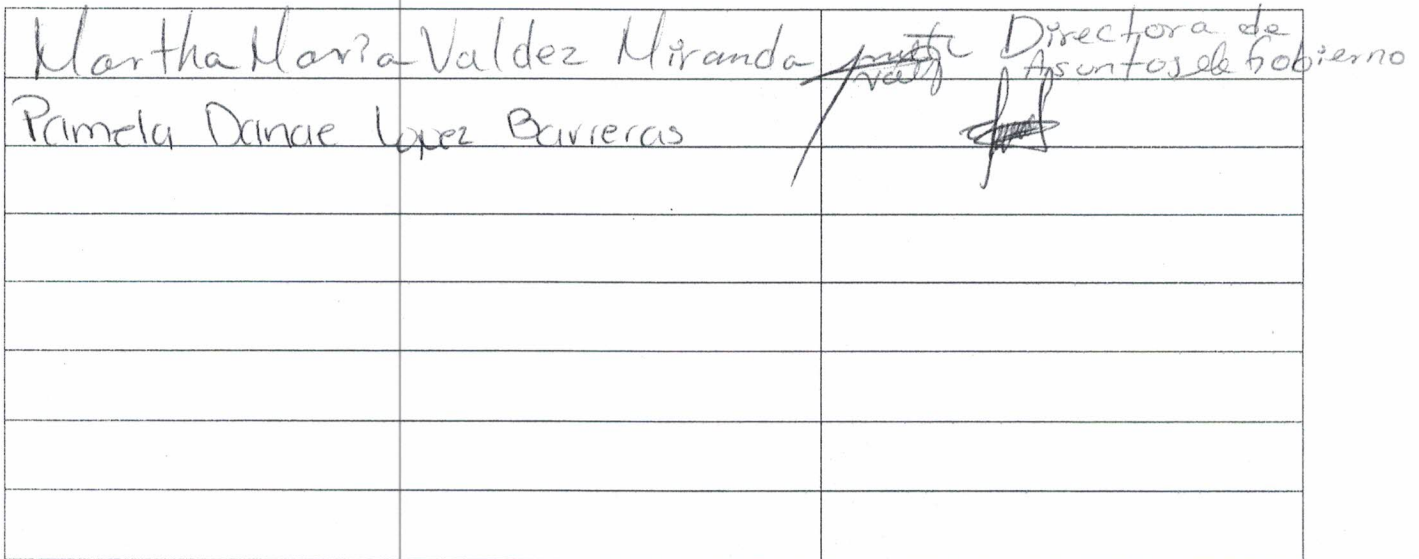 Martha Maria Valdez Miranda Directora de
Asuntos de Gobierno
Pamela Danae Lopez Barreras